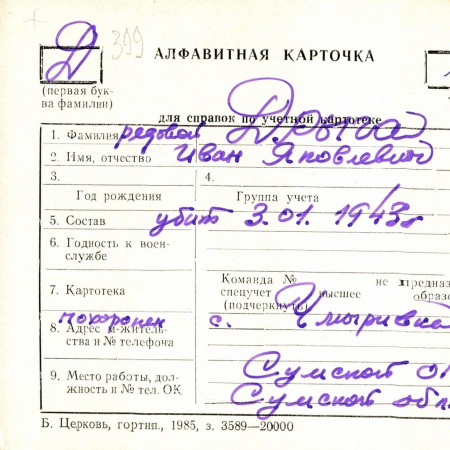 Д 399
АЛФАВИТНАЯ КАРТОЧКА
(первая бук-
ва фамилии)
для справок по учетной картотеке
1. Фамилия рядовой
2. Имя, отчество Иван Яковлевич
3. 4.
Год рождения Группа учета
5. Состав убит 3.01.1943г
6. Годность к воен-
службе
Команда № не предназ
7. Картотека спецучет высшее образо
(подчеркнуть)
похоронен с.
8. Адрес м-житель-
ства и № телефона
Сумской
9. Место работы, дол-
жность и № тел. ОК Сумской обл.
Б. Церковь, гортип., 1985, з. 3589—20000